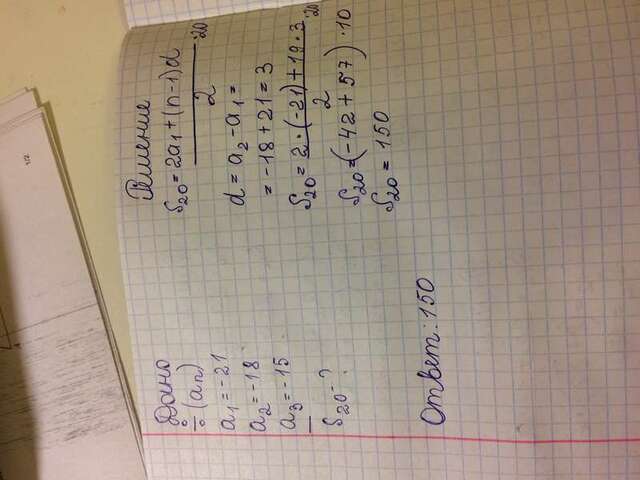 1/2
Дано
÷ (an)
a1 = -21
a2 = -18
a3 = -15
S20 - ?
Решение
S20 = 2a1 + (n-1)d / 2 · 20
d = a2 - a1 =
= -18 + 21 = 3
S20 = 2 · (-21) + 19 · 3 / 2 · 20
S20 = (-42 + 57) · 10
S20 = 150
Ответ: 150